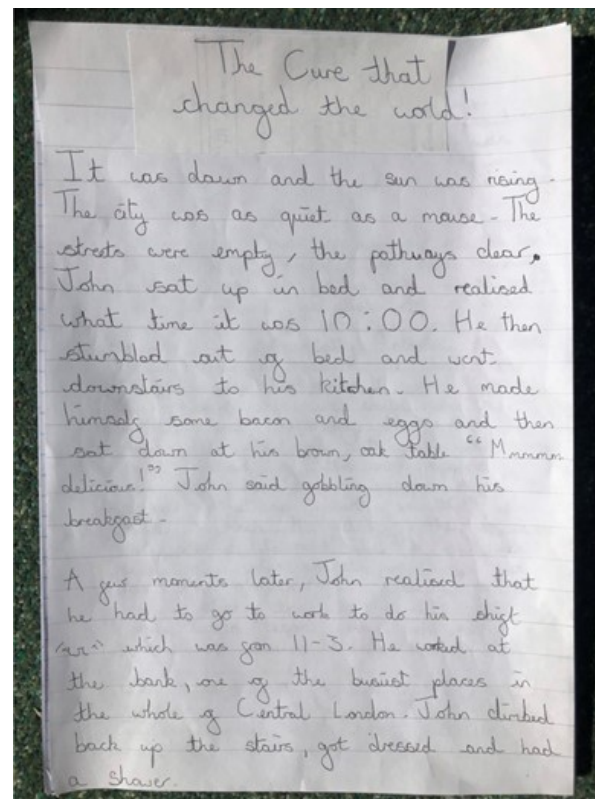 The Cure that
changed the world!
It was dawn and the sun was rising.
The city was as quiet as a mouse. The
streets were empty, the pathways clear.
John sat up in bed and realised
what time it was 10:00. He then
stumbled out of bed and went
downstairs to his kitchen. He made
himself some bacon and eggs and then
sat down at his brown, oak table “Mmmmm
delicious!” John said gobbling down his
breakfast.
A few moments later, John realised that
he had to go to work to do his shift
which was from 11-3. He worked at
the bank, one of the busiest places in
the whole of Central London. John climbed
back up the stairs, got dressed and had
a shower.